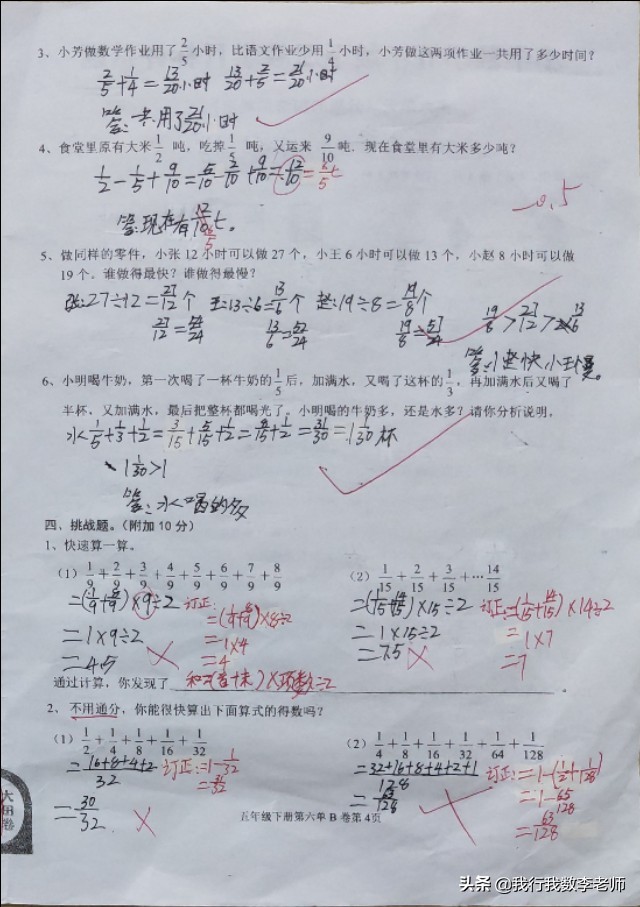 3、小芳做数学作业用了2/5小时，比语文作业少用1/4小时，小芳做这两项作业一共用了多少时间？
2/5+1/4=13/20小时 13/20+2/5=21/20小时
答：共用了21/20小时
4、食堂里原有大米1/2吨，吃掉1/5吨，又运来9/10吨．现在食堂里有大米多少吨？
1/2-1/5+9/10=5/10-2/10+9/10=12/10=6/5t
-0.5
答：现在有12/10t。
6/5
5、做同样的零件，小张12小时可以做27个，小王6小时可以做13个，小赵8小时可以做
19个。谁做得最快？谁做得最慢？
张：27÷12=27/12个 王：13÷6=13/6个 赵：19÷8=19/8个
27/12=54/24 13/6=52/24 19/8=57/24 19/8>27/12>13/6
答：小赵快，小王慢。
6、小明喝牛奶，第一次喝了一杯牛奶的1/5后，加满水，又喝了这杯的1/3，再加满水后又喝了
半杯，又加满水，最后把整杯都喝光了。小明喝的牛奶多，还是水多？请你分析说明，
水1/5+1/3+1/2=3/15+5/15+1/2=8/15+1/2=31/30=1 1/30杯
1 1/30>1
答：水喝的多
四、挑战题。（附加10分）
1、快速算一算。
（1）1/9+2/9+3/9+4/9+5/9+6/9+7/9+8/9 （2）1/15+2/15+3/15+…14/15
=(1/9+8/9)×9÷2 订正：=(1/9+8/9)×8÷2 =(1/15+14/15)×15÷2 订正：=(1/15+14/15)×14÷2
=1×9÷2 =1×4 =1×15÷2 =1×7
=4.5 =4 =7.5 =7
通过计算，你发现了 和=(首+末)×项数÷2
2、不用通分，你能很快算出下面算式的得数吗？
（1）1/2+1/4+1/8+1/16+1/32 （2）1/4+1/8+1/16+1/32+1/64+1/128
=16+8+4+2/32 订正：=1-1/32 =32+16+8+4+2+1/128 订正：=1-(1/2+1/128)
=30/32 =31/32 =63/128 =1-65/128
=63/128
五年级下册第六单B卷第4页
头条 @我行我数李老师